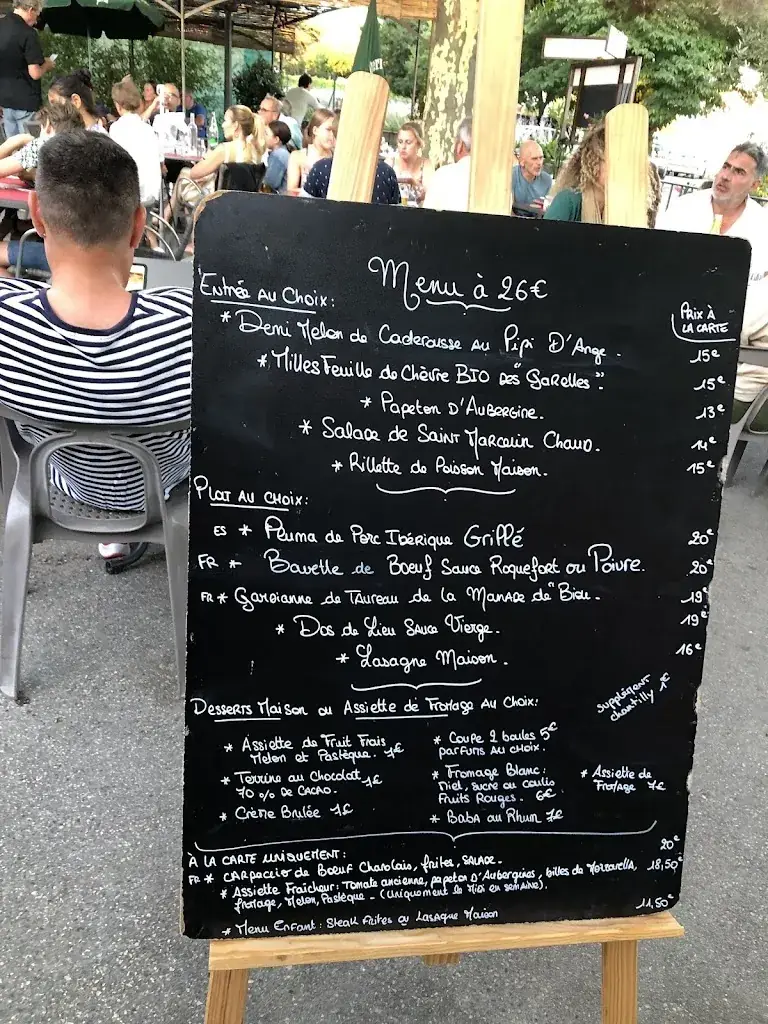 Menu à 26€
Entrée au Choix:
Prix à
la carte
* Demi Melon de Caderousse au Pipi D'Ange. 15€
* Milles Feuille de Chèvre BIO des "Garelles". 15€
* Papeton D'Aubergine. 13€
* Salade de Saint Marcelin Chaud. 14€
* Rillette de Poisson Maison. 15€
Plat au choix:
ES * Pluma de Porc Ibérique Grillé 20€
FR * Bavette de Boeuf Sauce Roquefort ou Poivre. 20€
FR * Gardianne de Taureau de la Manade de "Biou". 19€
* Dos de Lieu Sauce Vierge. 19€
* Lasagne Maison. 16€
Desserts Maison ou Assiette de Fromage au choix:
supplément
chantilly 1€
* Assiette de Fruit Frais
Melon et Pastèque. 7€
* Terrine au Chocolat 7€
70 % de cacao.
* Crème Brulée 7€
* Coupe 2 boules 5€
parfums au choix.
* Fromage Blanc:
Miel, sucre ou coulis
Fruits Rouges. 6€
* Baba au Rhum 7€
* Assiette de
Fromage 7€
À la carte uniquement:
FR * Carpaccio de Boeuf Charolais, frites, salade. 20€
* Assiette Fraîcheur: Tomate ancienne, papeton D'Aubergines, billes de Mozzarella, 18,50€
fromage, Melon, Pastèque - (Uniquement le Midi en semaine).
* Menu Enfant: Steak Frites ou Lasagne Maison 11,50€